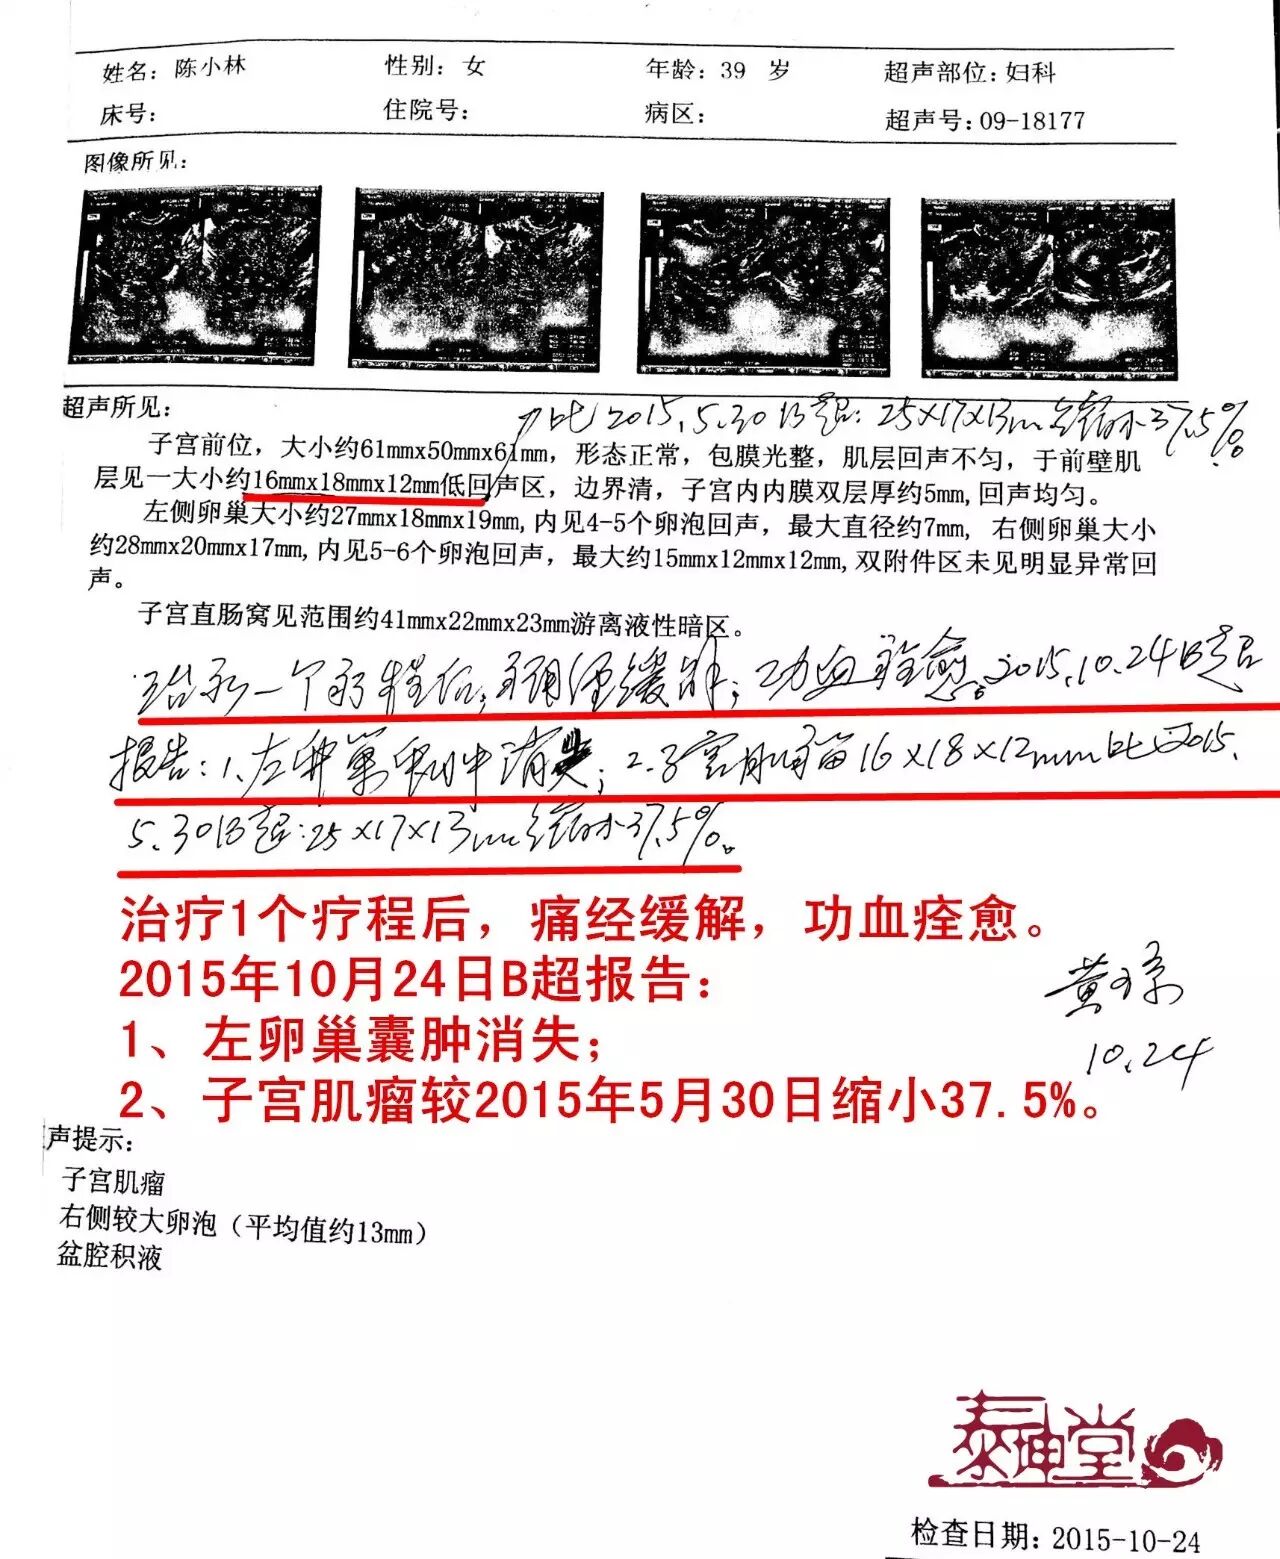 姓名：陈小林 性别：女 年龄：39 岁 超声部位：妇科
床号： 住院号： 病区： 超声号：09-18177
图像所见：
超声所见：
比 2015.5.30 B超：25×17×13mm 缩小37.5%。
子宫前位，大小约61mmx50mmx61mm，形态正常，包膜光整，肌层回声不匀，于前壁肌
层见一大小约16mmx18mmx12mm低回声区，边界清，子宫内内膜双层厚约5mm,回声均匀。
左侧卵巢大小约27mmx18mmx19mm,内见4-5个卵泡回声，最大直径约7mm, 右侧卵巢大小
约28mmx20mmx17mm,内见5-6个卵泡回声，最大约15mmx12mmx12mm,双附件区未见明显异常回
声。
子宫直肠窝见范围约41mmx22mmx23mm游离液性暗区。
治疗一个疗程后，痛经缓解；功血痊愈。2015.10.24B超
报告：1.左卵巢囊肿消失；2.子宫肌瘤16×18×12mm比2015.
5.30B超：25×17×13mm缩小37.5%。
治疗1个疗程后，痛经缓解，功血痊愈。
2015年10月24日B超报告：
1、左卵巢囊肿消失；
2、子宫肌瘤较2015年5月30日缩小37.5%。
10.24
声提示：
子宫肌瘤
右侧较大卵泡（平均值约13mm）
盆腔积液
泰坤堂
检查日期：2015-10-24